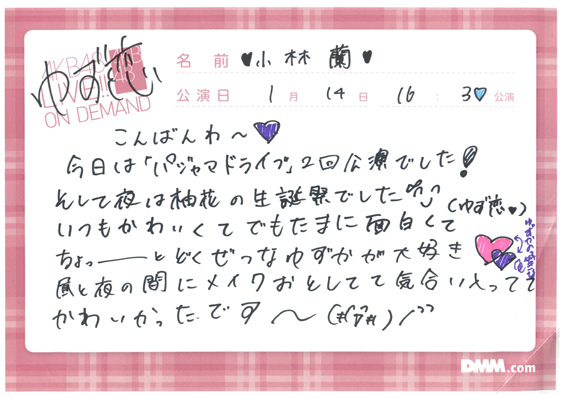 AKB48 LIVE!! ON DEMAND
ゆず恋
名前 ♥小林 蘭♥
公演日 1月 14日 16:30公演
こんばんわ〜
今日は「パジャマドライブ」2回公演でした!
そして夜は柚花の生誕祭でした
(ゆず恋♥)
いつもかわいくてでもたまに面白くて
ちょっーーとどくぜつなゆずかが大好き
昼と夜の間にメイクおとしてて気合い入ってて
かわいかったです〜
DMM.com